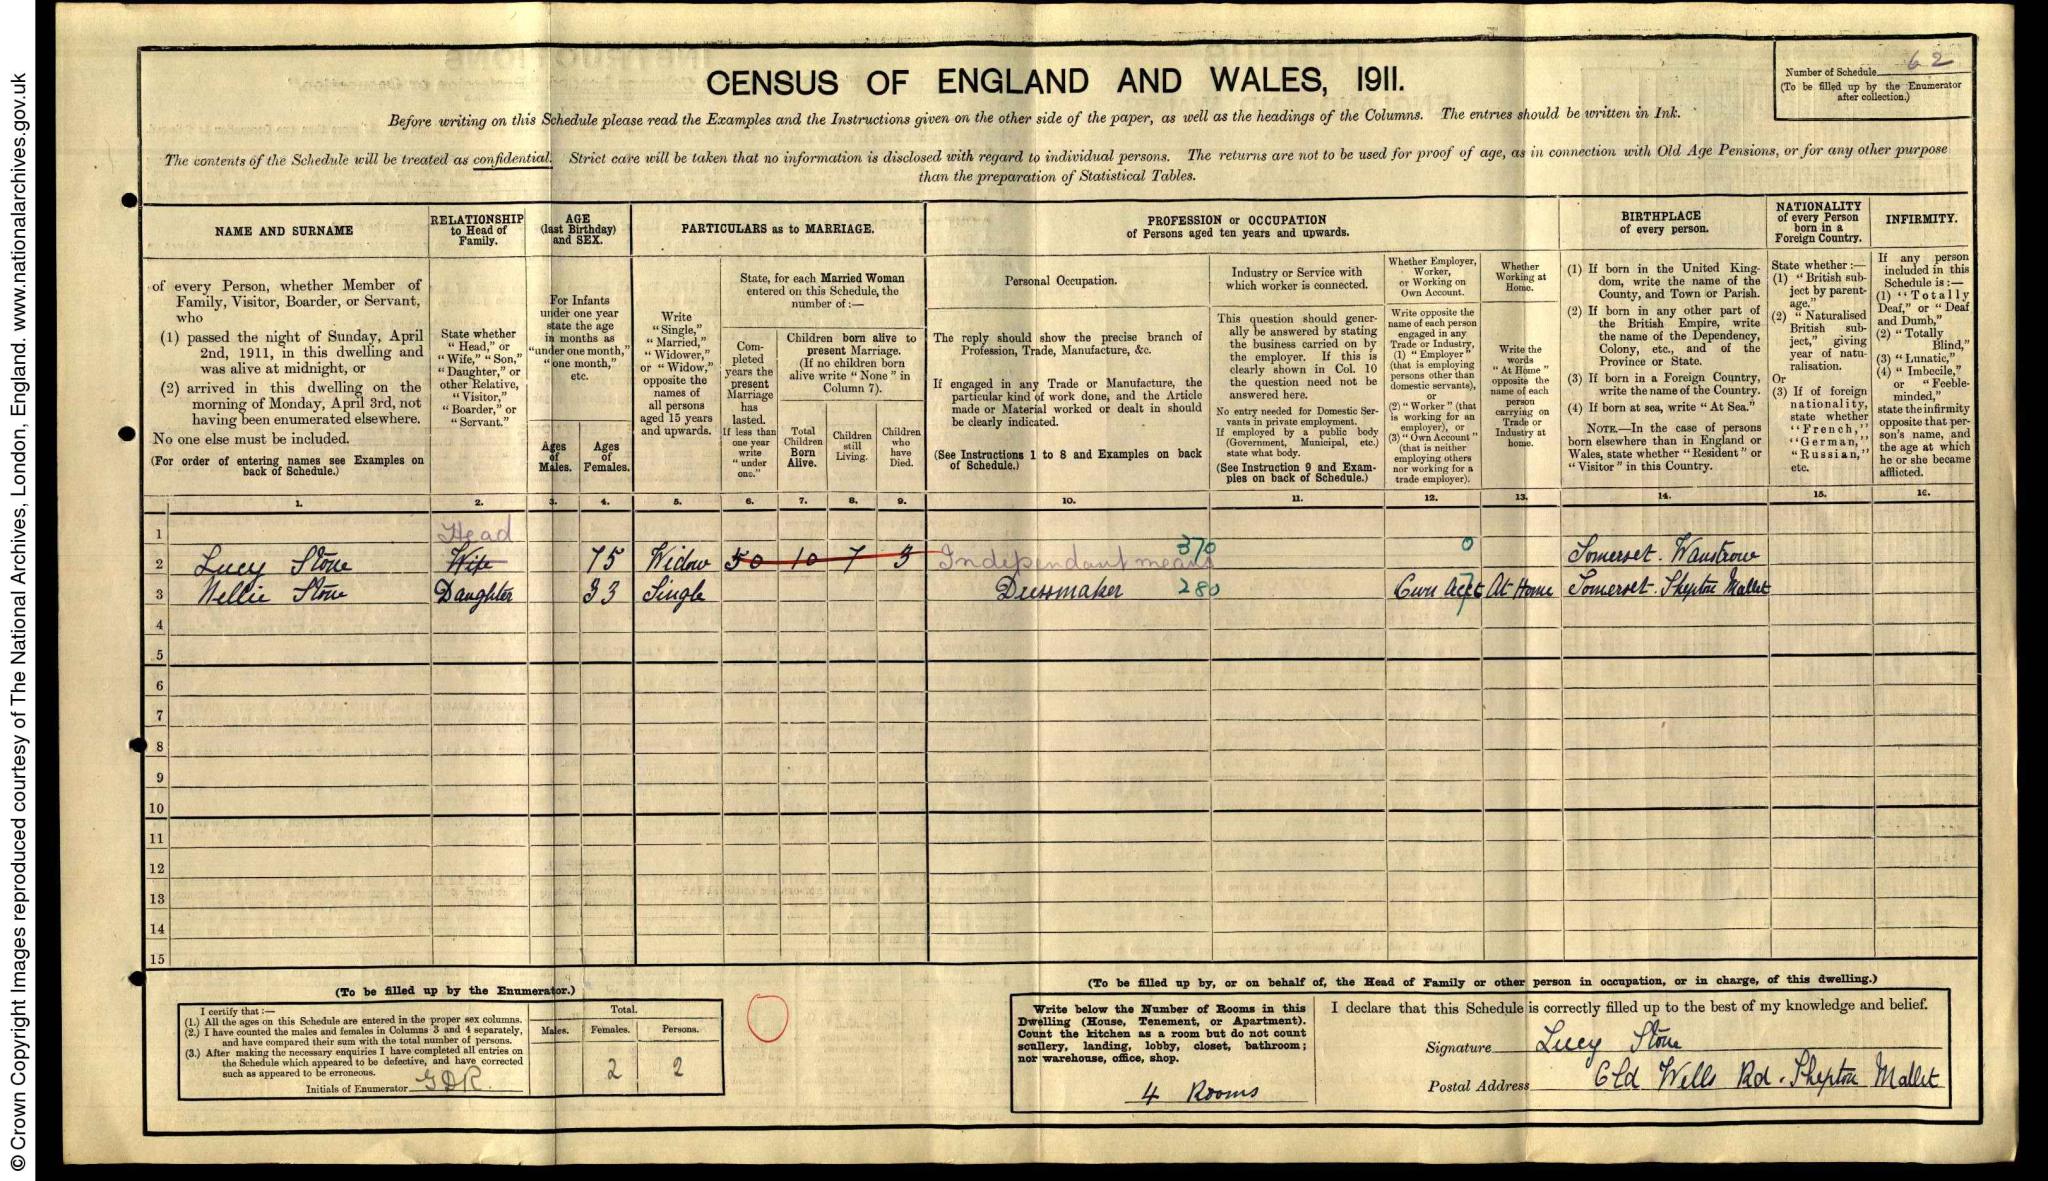 © Crown Copyright Images reproduced courtesy of The National Archives, London, England. www.nationalarchives.gov.uk
CENSUS OF ENGLAND AND WALES, 1911.
Number of Schedule 62
(To be filled up by the Enumerator
after collection.)
Before writing on this Schedule please read the Examples and the Instructions given on the other side of the paper, as well as the headings of the Columns. The entries should be written in Ink.
The contents of the Schedule will be treated as confidential. Strict care will be taken that no information is disclosed with regard to individual persons. The returns are not to be used for proof of age, as in connection with Old Age Pensions, or for any other purpose
than the preparation of Statistical Tables.
NAME AND SURNAME
of every Person, whether Member of
Family, Visitor, Boarder, or Servant,
who
(1) passed the night of Sunday, April
2nd, 1911, in this dwelling and
was alive at midnight, or
(2) arrived in this dwelling on the
morning of Monday, April 3rd, not
having been enumerated elsewhere.
No one else must be included.
(For order of entering names see Examples on
back of Schedule.)
RELATIONSHIP
to Head of
Family.
State whether
"Head," or
"Wife," "Son,"
"Daughter," or
other Relative,
"Visitor,"
"Boarder," or
"Servant."
AGE
(last Birthday)
and SEX.
For Infants
under one year
state the age
in months as
"under one month,"
"one month,"
etc.
Ages
of
Males.
Ages
of
Females.
PARTICULARS as to MARRIAGE.
Write
"Single,"
"Married,"
"Widower,"
or "Widow,"
opposite the
names of
all persons
aged 15 years
and upwards.
State, for each Married Woman
entered on this Schedule, the
number of:—
Com-
pleted
years the
present
Marriage
has
lasted.
If less than
one year
write
"under
one."
Children born alive to
present Marriage.
(If no children born
alive write "None" in
Column 7).
Total
Children
Born
Alive.
Children
still
Living.
Children
who
have
Died.
PROFESSION or OCCUPATION
of Persons aged ten years and upwards.
Personal Occupation.
The reply should show the precise branch of
Profession, Trade, Manufacture, &c.
If engaged in any Trade or Manufacture, the
particular kind of work done, and the Article
made or Material worked or dealt in should
be clearly indicated.
(See Instructions 1 to 8 and Examples on back
of Schedule.)
Industry or Service with
which worker is connected.
This question should gener-
ally be answered by stating
the business carried on by
the employer. If this is
clearly shown in Col. 10
the question need not be
answered here.
No entry needed for Domestic Ser-
vants in private employment.
If employed by a public body
(Government, Municipal, etc.)
state what body.
(See Instruction 9 and Exam-
ples on back of Schedule.)
Whether Employer,
Worker,
or Working on
Own Account.
Write opposite the
name of each person
engaged in any
Trade or Industry,
(1) "Employer"
(that is employing
persons other than
domestic servants),
or
(2) "Worker" (that
is working for an
employer), or
(3) "Own Account"
(that is neither
employing others
nor working for a
trade employer).
Whether
Working at
Home.
Write the
words
"At Home"
opposite the
name of each
person
carrying on
Trade or
Industry at
home.
BIRTHPLACE
of every person.
(1) If born in the United King-
dom, write the name of the
County, and Town or Parish.
(2) If born in any other part of
the British Empire, write
the name of the Dependency,
Colony, etc., and of the
Province or State.
(3) If born in a Foreign Country,
write the name of the Country.
(4) If born at sea, write "At Sea."
NOTE.—In the case of persons
born elsewhere than in England or
Wales, state whether "Resident" or
"Visitor" in this Country.
NATIONALITY
of every Person
born in a
Foreign Country.
State whether:—
(1) "British sub-
ject by parent-
age."
(2) "Naturalised
British sub-
ject," giving
year of natu-
ralisation.
Or
(3) If of foreign
nationality,
state whether
"French,"
"German,"
"Russian,"
etc.
INFIRMITY.
If any person
included in this
Schedule is:—
(1) "Totally
Deaf," or "Deaf
and Dumb,"
(2) "Totally
Blind,"
(3) "Lunatic,"
(4) "Imbecile,"
or "Feeble-
minded,"
state the infirmity
opposite that per-
son's name, and
the age at which
he or she became
afflicted.
1. 2. 3. 4. 5. 6. 7. 8. 9. 10. 11. 12. 13. 14. 15. 16.
1 Head
2 Lucy Stone Wife 75 Widow 50 10 7 3 Independant means 370 0 Somerset. Wanstrow
3 Nellie Stone Daughter 33 Single Dressmaker 280 Own Acct At Home Somerset. Shepton Mallet
4
5
6
7
8
9
10
11
12
13
14
15
(To be filled up by the Enumerator.)
I certify that:—
(1.) All the ages on this Schedule are entered in the proper sex columns.
(2.) I have counted the males and females in Columns 3 and 4 separately,
and have compared their sum with the total number of persons.
(3.) After making the necessary enquiries I have completed all entries on
the Schedule which appeared to be defective, and have corrected
such as appeared to be erroneous.
Initials of Enumerator GDR.
Total.
Males. Females. Persons.
2 2
(To be filled up by, or on behalf of, the Head of Family or other person in occupation, or in charge, of this dwelling.)
Write below the Number of Rooms in this
Dwelling (House, Tenement, or Apartment).
Count the kitchen as a room but do not count
scullery, landing, lobby, closet, bathroom;
nor warehouse, office, shop.
4 Rooms
I declare that this Schedule is correctly filled up to the best of my knowledge and belief.
Signature Lucy Stone
Postal Address Old Wells Rd. Shepton Mallet